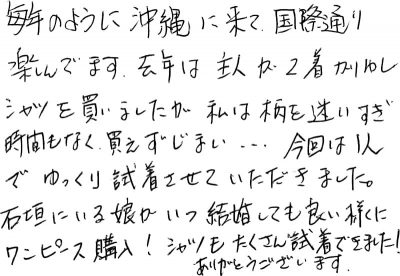 毎年のように沖縄に来て、国際通り
楽しんでます。去年は主人が2着かりゆし
シャツを買いましたが 私は柄を迷いすぎ
時間もなく、買えずじまい… 今回は1人
でゆっくり試着させていただきました。
石垣にいる娘がいつ結婚しても良い様に
ワンピース購入！シャツもたくさん試着できました！
ありがとうございます。